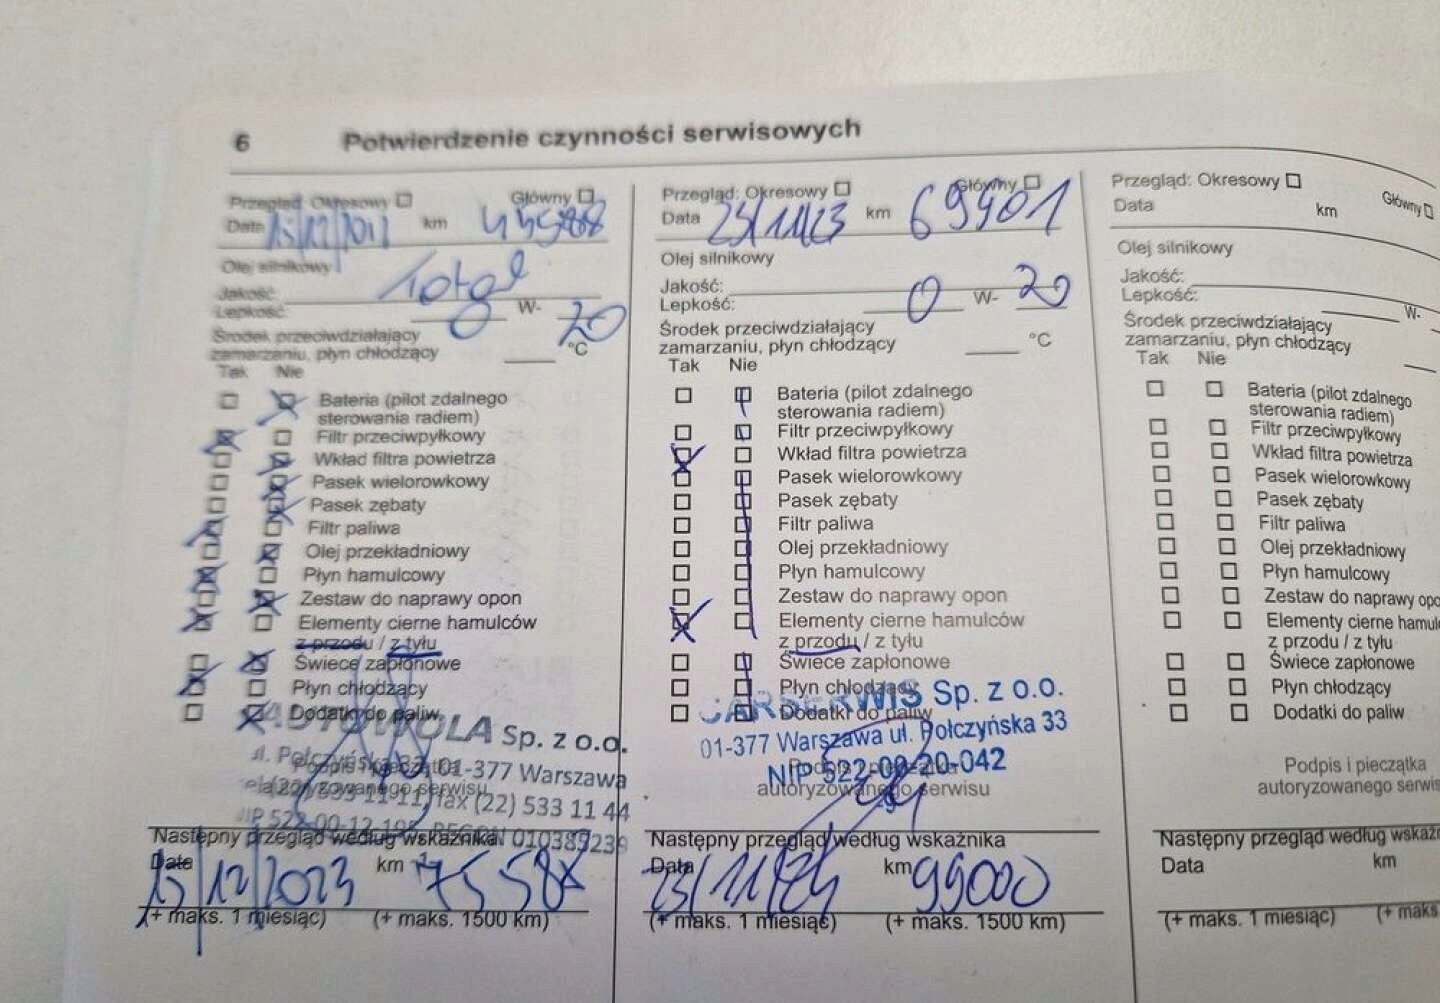 6 Potwierdzenie czynności serwisowych
Przegląd: Okresowy Główny
Data 15/12/2022 km 45588
Olej silnikowy
Jakość: Total
Lepkość: 0 W- 20
Środek przeciwdziałający
zamarzaniu, płyn chłodzący °C
Tak Nie
Bateria (pilot zdalnego
sterowania radiem)
Filtr przeciwpyłkowy
Wkład filtra powietrza
Pasek wielorowkowy
Pasek zębaty
Filtr paliwa
Olej przekładniowy
Płyn hamulcowy
Zestaw do naprawy opon
Elementy cierne hamulców
z przodu / z tyłu
Świece zapłonowe
Płyn chłodzący
Dodatki do paliw
AUTOWOLA Sp. z o.o.
ul. Połczyńska 33, 01-377 Warszawa
Podpis i pieczątka
autoryzowanego serwisu
fax (22) 533 11 44
NIP 522-00-12-195, REGON 010385239
Następny przegląd według wskaźnika
Data 15/12/2023 km 75588
(+ maks. 1 miesiąc) (+ maks. 1500 km)
Przegląd: Okresowy Główny
Data 23/11/23 km 69901
Olej silnikowy
Jakość:
Lepkość: 0 W- 20
Środek przeciwdziałający
zamarzaniu, płyn chłodzący °C
Tak Nie
Bateria (pilot zdalnego
sterowania radiem)
Filtr przeciwpyłkowy
Wkład filtra powietrza
Pasek wielorowkowy
Pasek zębaty
Filtr paliwa
Olej przekładniowy
Płyn hamulcowy
Zestaw do naprawy opon
Elementy cierne hamulców
z przodu / z tyłu
Świece zapłonowe
Płyn chłodzący
Dodatki do paliw
CARSERWIS Sp. z o.o.
01-377 Warszawa ul. Połczyńska 33
NIP 522-00-20-042
Podpis i pieczątka
autoryzowanego serwisu
Następny przegląd według wskaźnika
Data 23/11/24 km 99000
(+ maks. 1 miesiąc) (+ maks. 1500 km)
Przegląd: Okresowy Główny
Data km
Olej silnikowy
Jakość:
Lepkość: W-
Środek przeciwdziałający
zamarzaniu, płyn chłodzący
Tak Nie
Bateria (pilot zdalnego
sterowania radiem)
Filtr przeciwpyłkowy
Wkład filtra powietrza
Pasek wielorowkowy
Pasek zębaty
Filtr paliwa
Olej przekładniowy
Płyn hamulcowy
Zestaw do naprawy opo
Elementy cierne hamulc
z przodu / z tyłu
Świece zapłonowe
Płyn chłodzący
Dodatki do paliw
Podpis i pieczątka
autoryzowanego serwis
Następny przegląd według wskaźn
Data km
(+ maks. 1 miesiąc) (+ maks